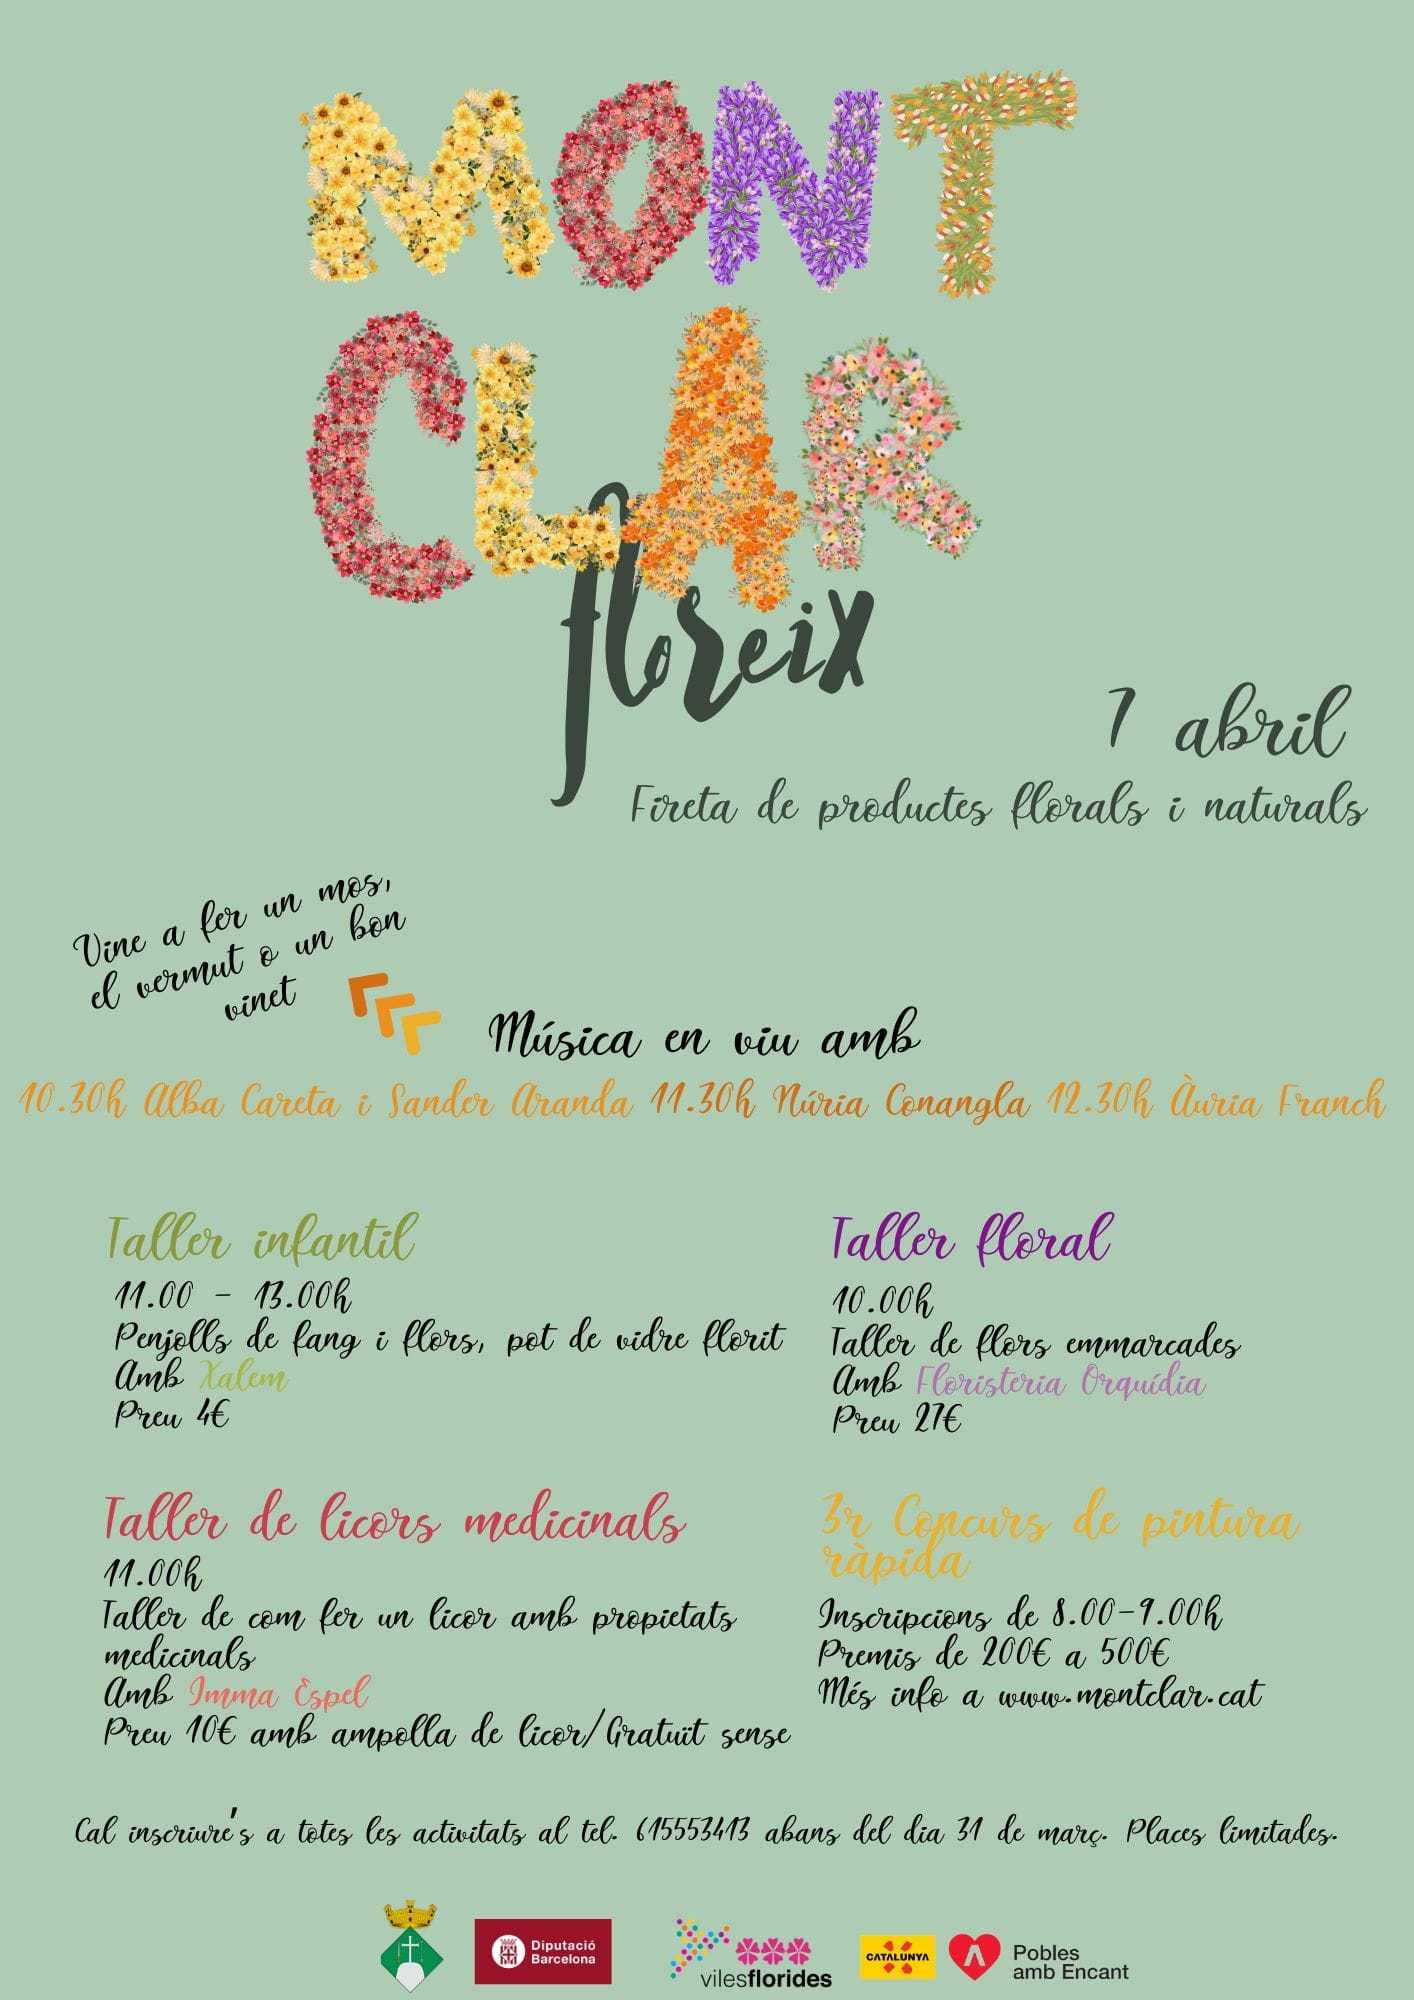 MONT
CLAR
floreix
7 abril
Fireta de productes florals i naturals
Vine a fer un mos,
el vermut o un bon
vinet
Música en viu amb
10.30h Alba Careta i Sander Aranda 11.30h Núria Conangla 12.30h Àuria Franch
Taller infantil
11.00 - 13.00h
Penjolls de fang i flors, pot de vidre florit
Amb Xalem
Preu 4€
Taller floral
10.00h
Taller de flors emmarcades
Amb Floristeria Orquídia
Preu 27€
Taller de licors medicinals
11.00h
Taller de com fer un licor amb propietats
medicinals
Amb Imma Espel
Preu 10€ amb ampolla de licor/Gratuït sense
3r Concurs de pintura
ràpida
Inscripcions de 8.00-9.00h
Premis de 200€ a 500€
Més info a www.montclar.cat
Cal inscriure's a totes les activitats al tel. 615553413 abans del dia 31 de març. Places limitades.
Diputació
Barcelona
vilesflorides
CATALUNYA
Pobles
amb Encant